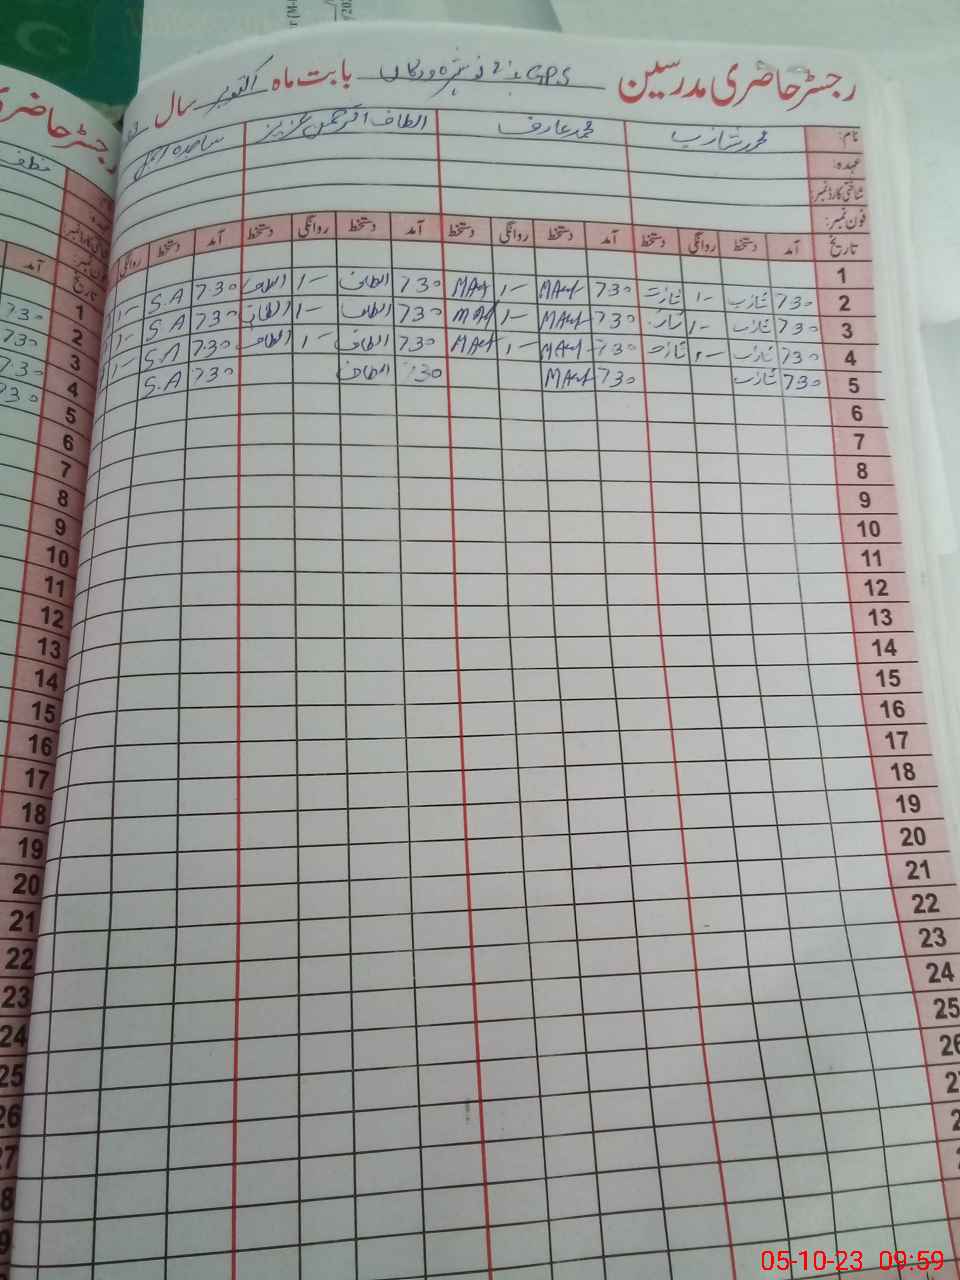 رجسٹر حاضری مدرسین G.P.S نمبر 2 نوشہرہ ورکاں بابت ماہ اکتوبر سال
نام: محمد شازب محمد عارف الطاف الرحمن عزیز ساجدہ
عہدہ:
شناختی کارڈ نمبر:
فون نمبر:
تاریخ آمد دستخط روانگی دستخط آمد دستخط روانگی دستخط آمد دستخط روانگی دستخط آمد دستخط روانگی
1
2 730 شازب 1- شازب 730 MArf 1- MArf 730 الطاف 1- الطاف 730 S.A 1-
3 730 شازب 1- شازب 730 MArf 1- MArf 730 الطاف 1- الطاف 730 S.A 1-
4 730 شازب 1- شازب 730 MArf 1- MArf 730 الطاف 1- الطاف 730 S.A 1-
5 730 شازب 730 MArf 730 الطاف 730 S.A
6
7
8
9
10
11
12
13
14
15
16
17
18
19
20
21
22
23
24
25
26
رجسٹر حاضری
آمد تاریخ
1 730
2 730
3 730
4 730
5
6
7
8
9
10
11
12
13
14
15
16
17
18
19
20
21
22
23
24
25
26
05-10-23 09:59